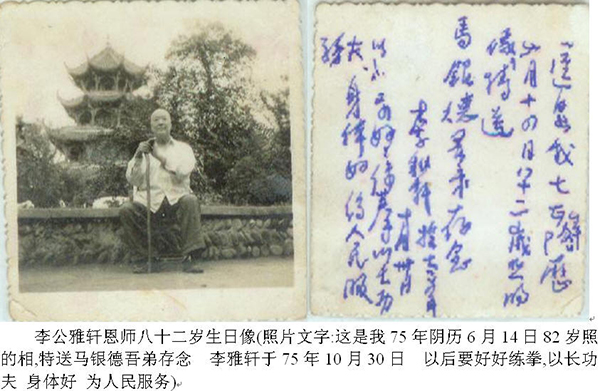 這是我七五年阴历
六月十四日八十二歲照的
像特送
馬銀德吾弟存念
李雅軒
十月卅日
身體好 為人民服
李公雅轩恩师八十二岁生日像(照片文字:这是我75年阴历6月14日82岁照
的相,特送马银德吾弟存念 李雅轩于75年10月30日 以后要好好练拳,以长功
夫 身体好 为人民服务)